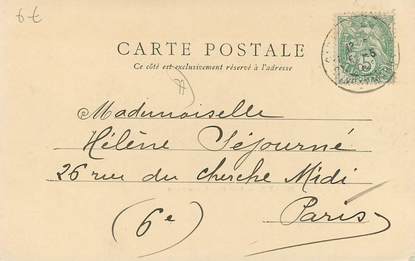 6€
CARTE POSTALE
Ce côté est exclusivement réservé à l'adresse
Mademoiselle
Hélène Séjourné
26 rue du cherche Midi
Paris
(6e)